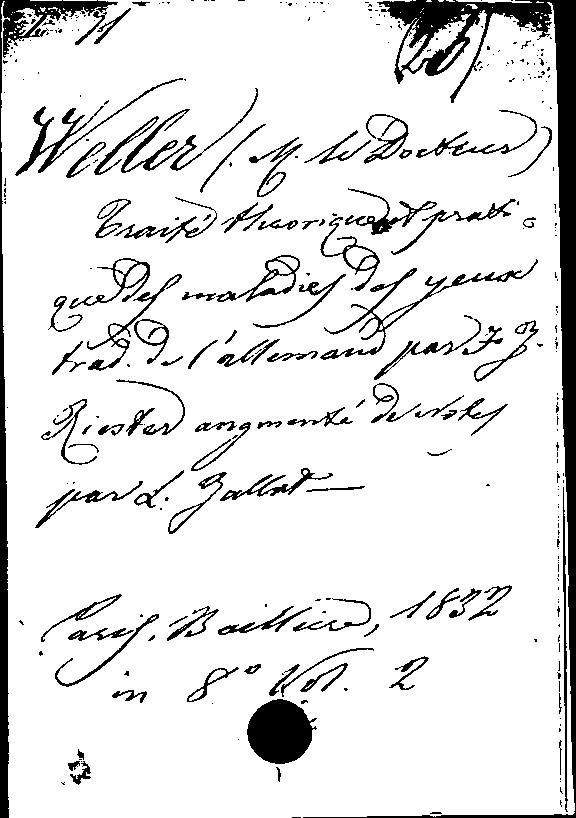 (26)
Weller (M. le Docteur)
Traité théorique et prati-
que des maladies des yeux
trad. de l'allemand par F. J.
Riester augmenté de notes
par L. Jallat
Paris, Baillière, 1832
in 8° Vol. 2